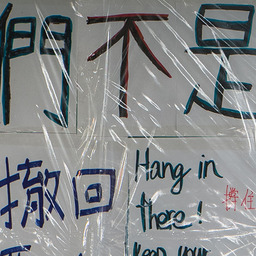 們不是
撤回
Hang in
there!
撐住
keep your